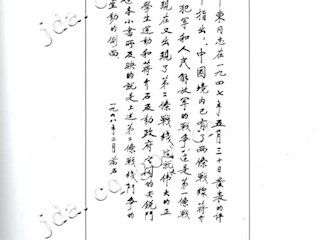 東同志在一九四七年五月三十日發表的評
中指出：中國境內已有了两條戰線。蔣介
犯軍和人民解放軍的戰爭，這是第一條戰
現在又出現了第二條戰綫，這就伟大的正
學生運動和蔣介石反動政府之間的尖銳鬥
本小書所反映的就是上述第二條戰綫鬥争的
生動的側面